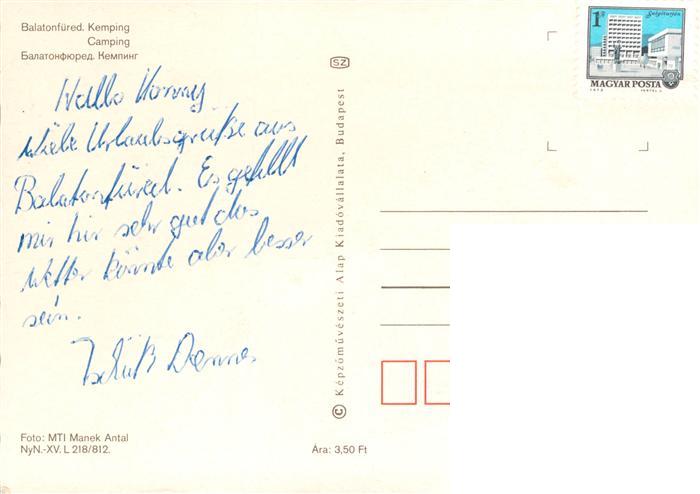 Balatonfüred. Kemping
Camping
Балатонфюред. Кемпинг
Hallo Konny
Viele Urlaubsgrüße aus
Balatonfüred. Es gefällt
mir hir sehr gut das
Wetter könnte aber besser
sein.
Tschüß
Foto: MTI Manek Antal
NyN.-XV. L 218/812.
Ára: 3,50 Ft
SZ
© Képzőművészeti Alap Kiadóvállalata, Budapest
1 Ft
Salgótarján
MAGYAR POSTA
1973